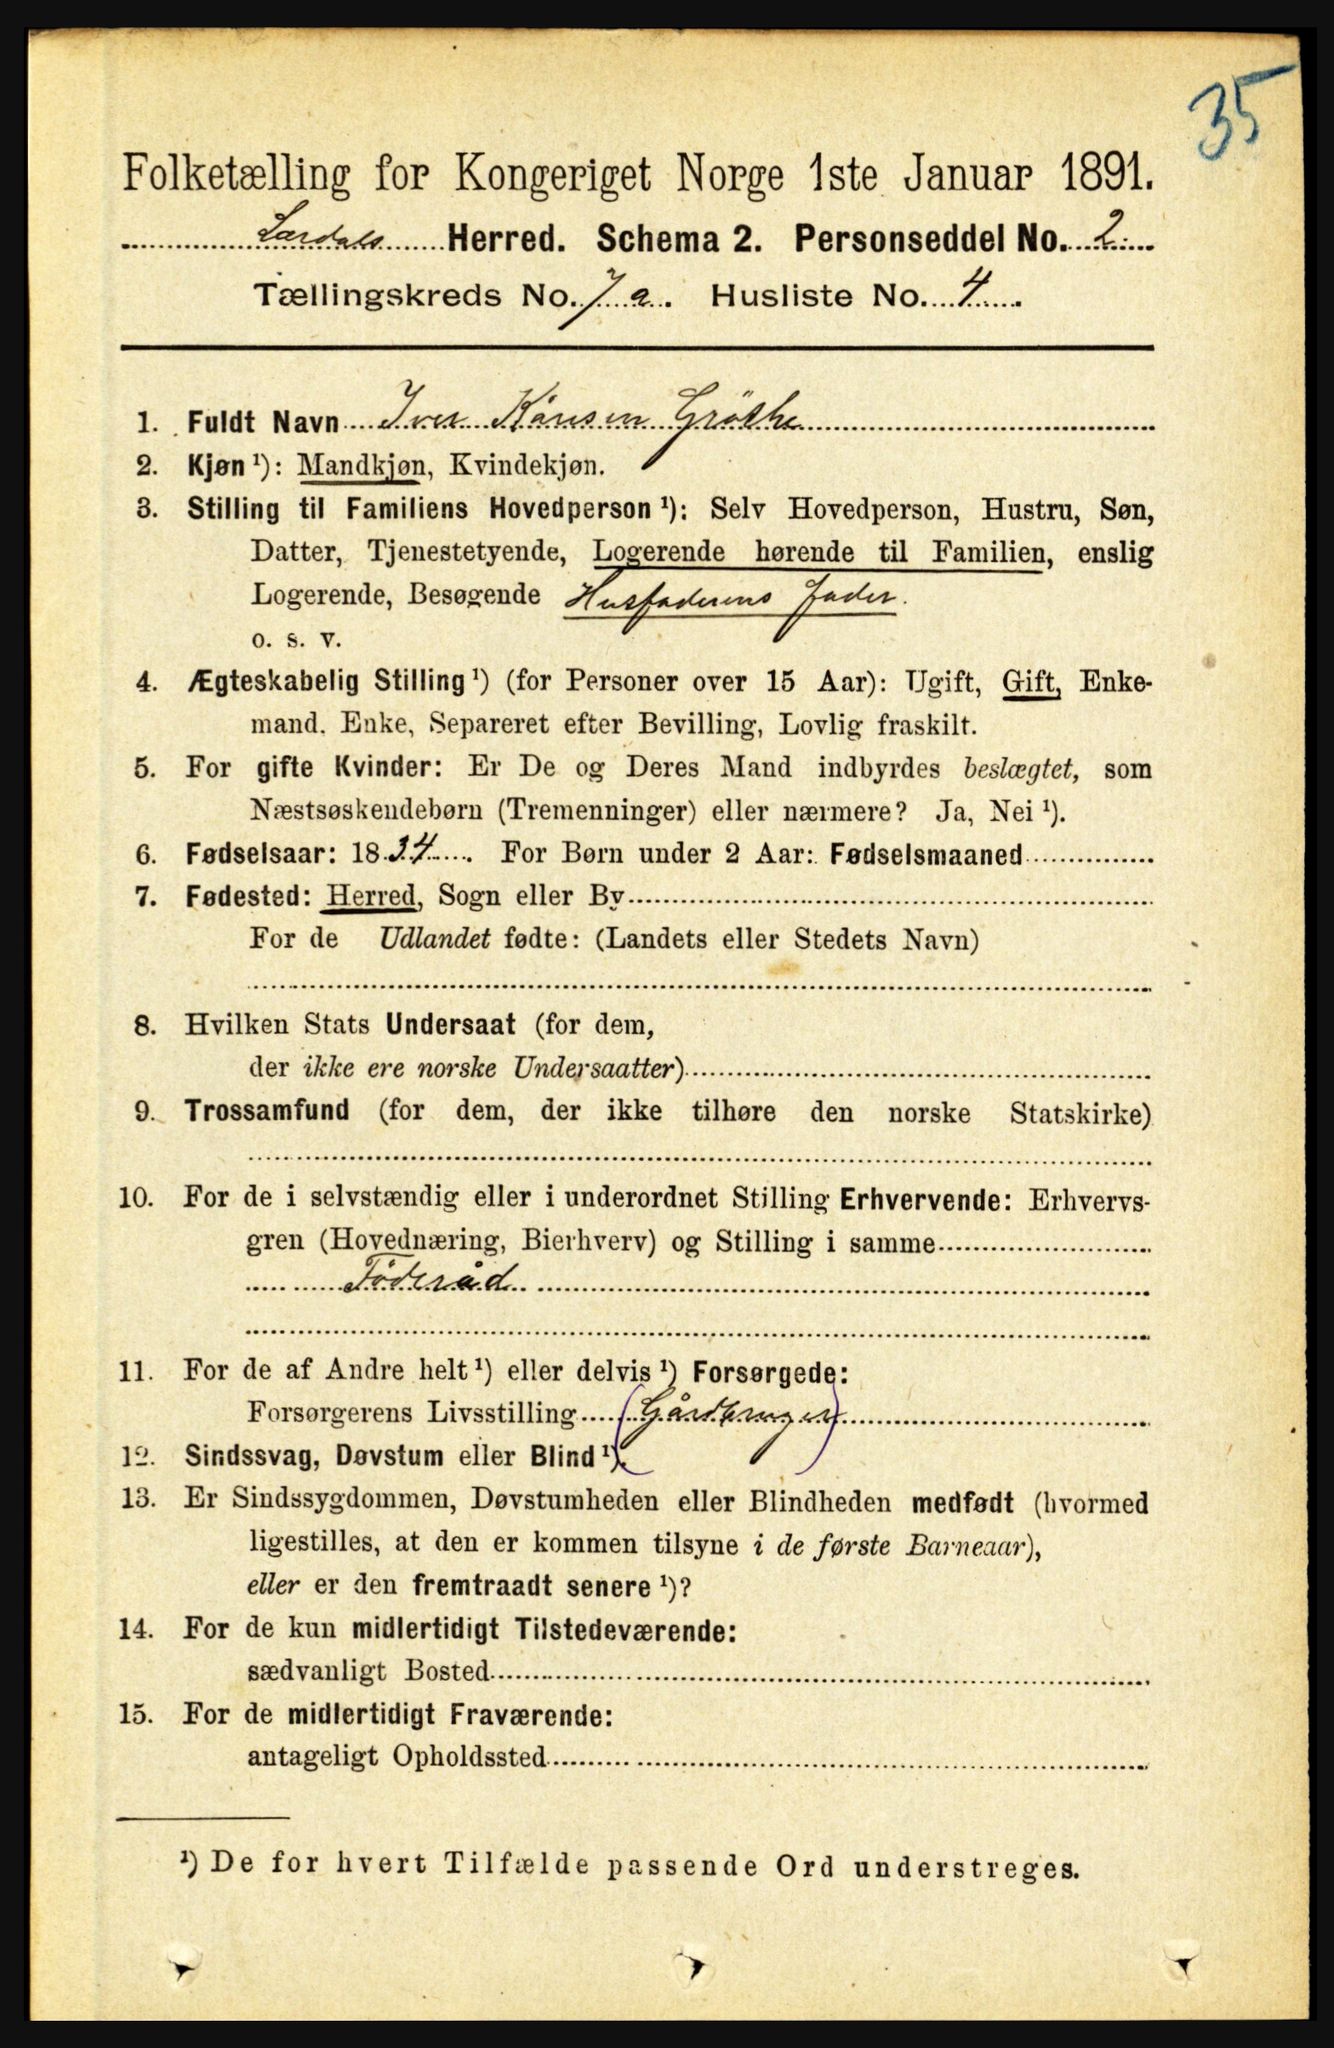 35
Folketælling for Kongeriget Norge 1ste Januar 1891.
Lærdals Herred. Schema 2. Personseddel No. 2
Tællingskreds No. 7 a. Husliste No. 4
1. Fuldt Navn Iver Kårsen Gröthe
2. Kjøn ¹): Mandkjøn, Kvindekjøn.
3. Stilling til Familiens Hovedperson ¹): Selv Hovedperson, Hustru, Søn,
Datter, Tjenestetyende, Logerende hørende til Familien, enslig
Logerende, Besøgende Husfaderens fader.
o. s. v.
4. Ægteskabelig Stilling ¹) (for Personer over 15 Aar): Ugift, Gift, Enke-
mand, Enke, Separeret efter Bevilling, Lovlig fraskilt.
5. For gifte Kvinder: Er De og Deres Mand indbyrdes beslægtet, som
Næstsøskendebørn (Tremenninger) eller nærmere? Ja, Nei ¹).
6. Fødselsaar: 1834. For Børn under 2 Aar: Fødselsmaaned
7. Fødested: Herred, Sogn eller By
For de Udlandet fødte: (Landets eller Stedets Navn)
8. Hvilken Stats Undersaat (for dem,
der ikke ere norske Undersaatter)
9. Trossamfund (for dem, der ikke tilhøre den norske Statskirke)
10. For de i selvstændig eller i underordnet Stilling Erhvervende: Erhvervs-
gren (Hovednæring, Bierhverv) og Stilling i samme
Föderåd
11. For de af Andre helt ¹) eller delvis ¹) Forsørgede:
Forsørgerens Livsstilling (Gårdbruger)
12. Sindssvag, Døvstum eller Blind ¹).
13. Er Sindssygdommen, Døvstumheden eller Blindheden medfødt (hvormed
ligestilles, at den er kommen tilsyne i de første Barneaar),
eller er den fremtraadt senere ¹)?
14. For de kun midlertidigt Tilstedeværende:
sædvanligt Bosted
15. For de midlertidigt Fraværende:
antageligt Opholdssted
¹) De for hvert Tilfælde passende Ord understreges.